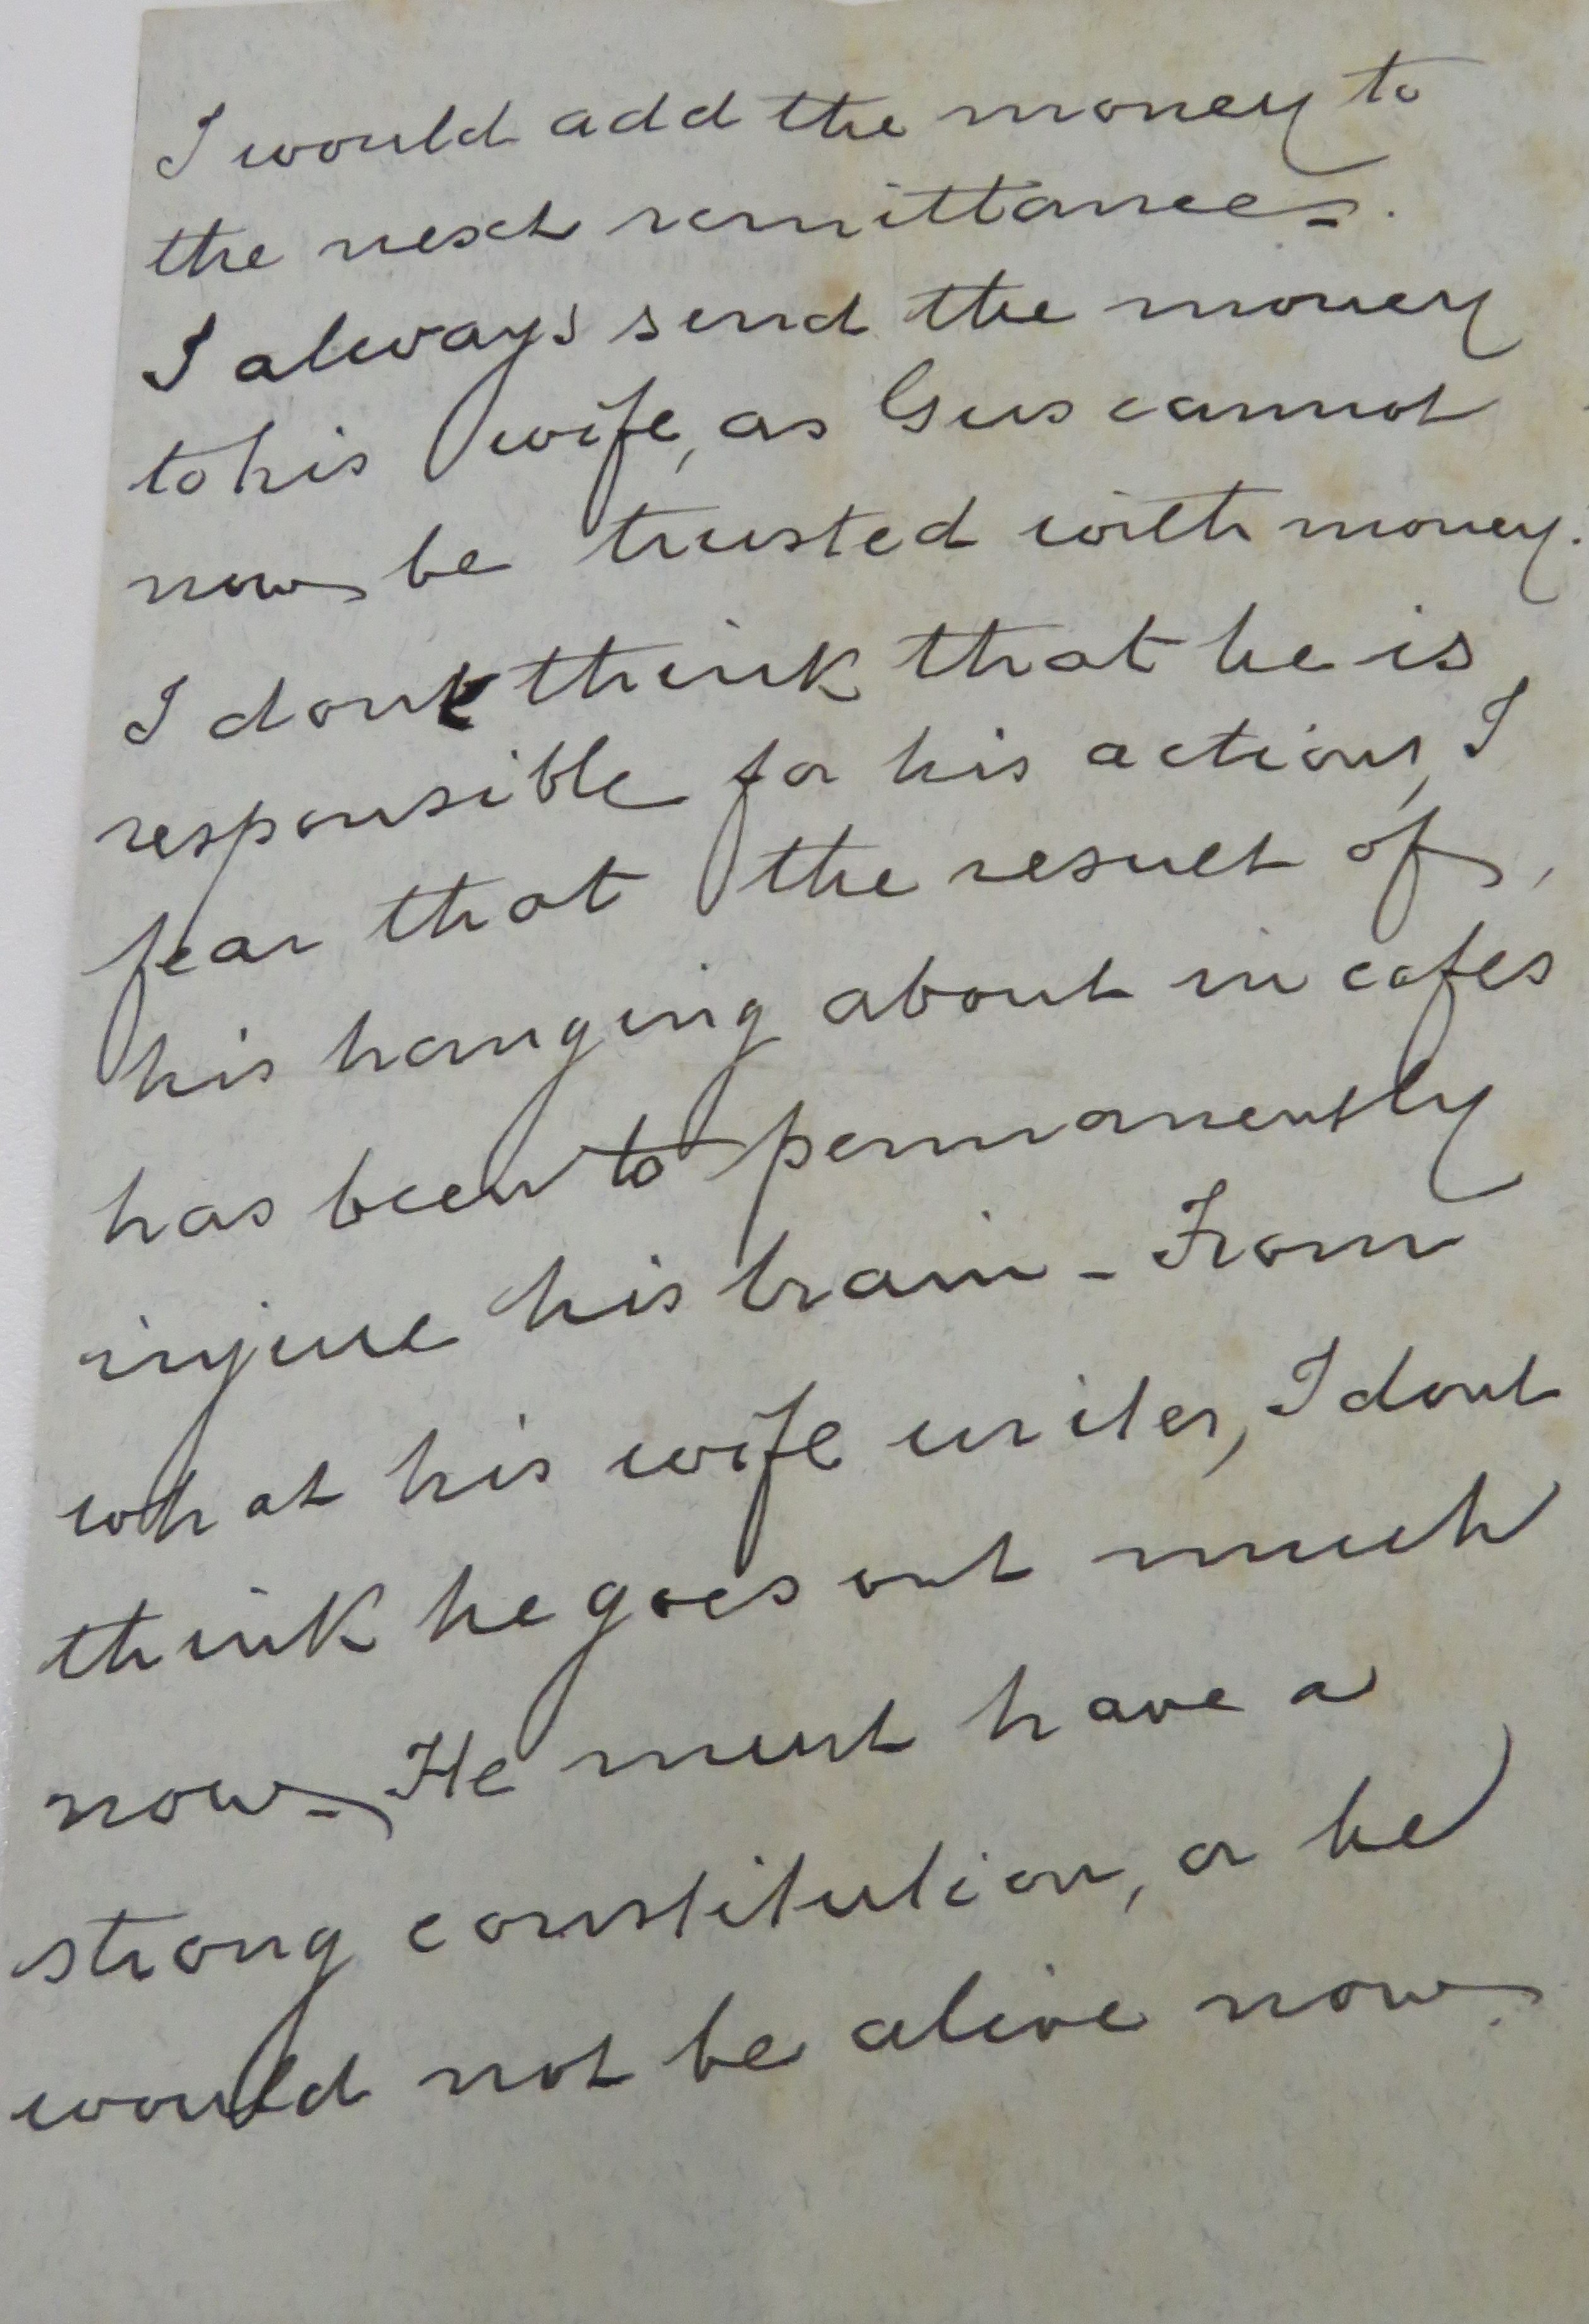 I would add the money to
the next remittances.
I always send the money
to his wife, as Gus cannot
now be trusted with money.
I dont think that he is
responsible for his actions, I
fear that the result of
his hanging about in cafes
has been to permanently
injure his brain - From
what his wife writes, I dont
think he goes out much
now - He must have a
strong constitution, or he
would not be alive now.